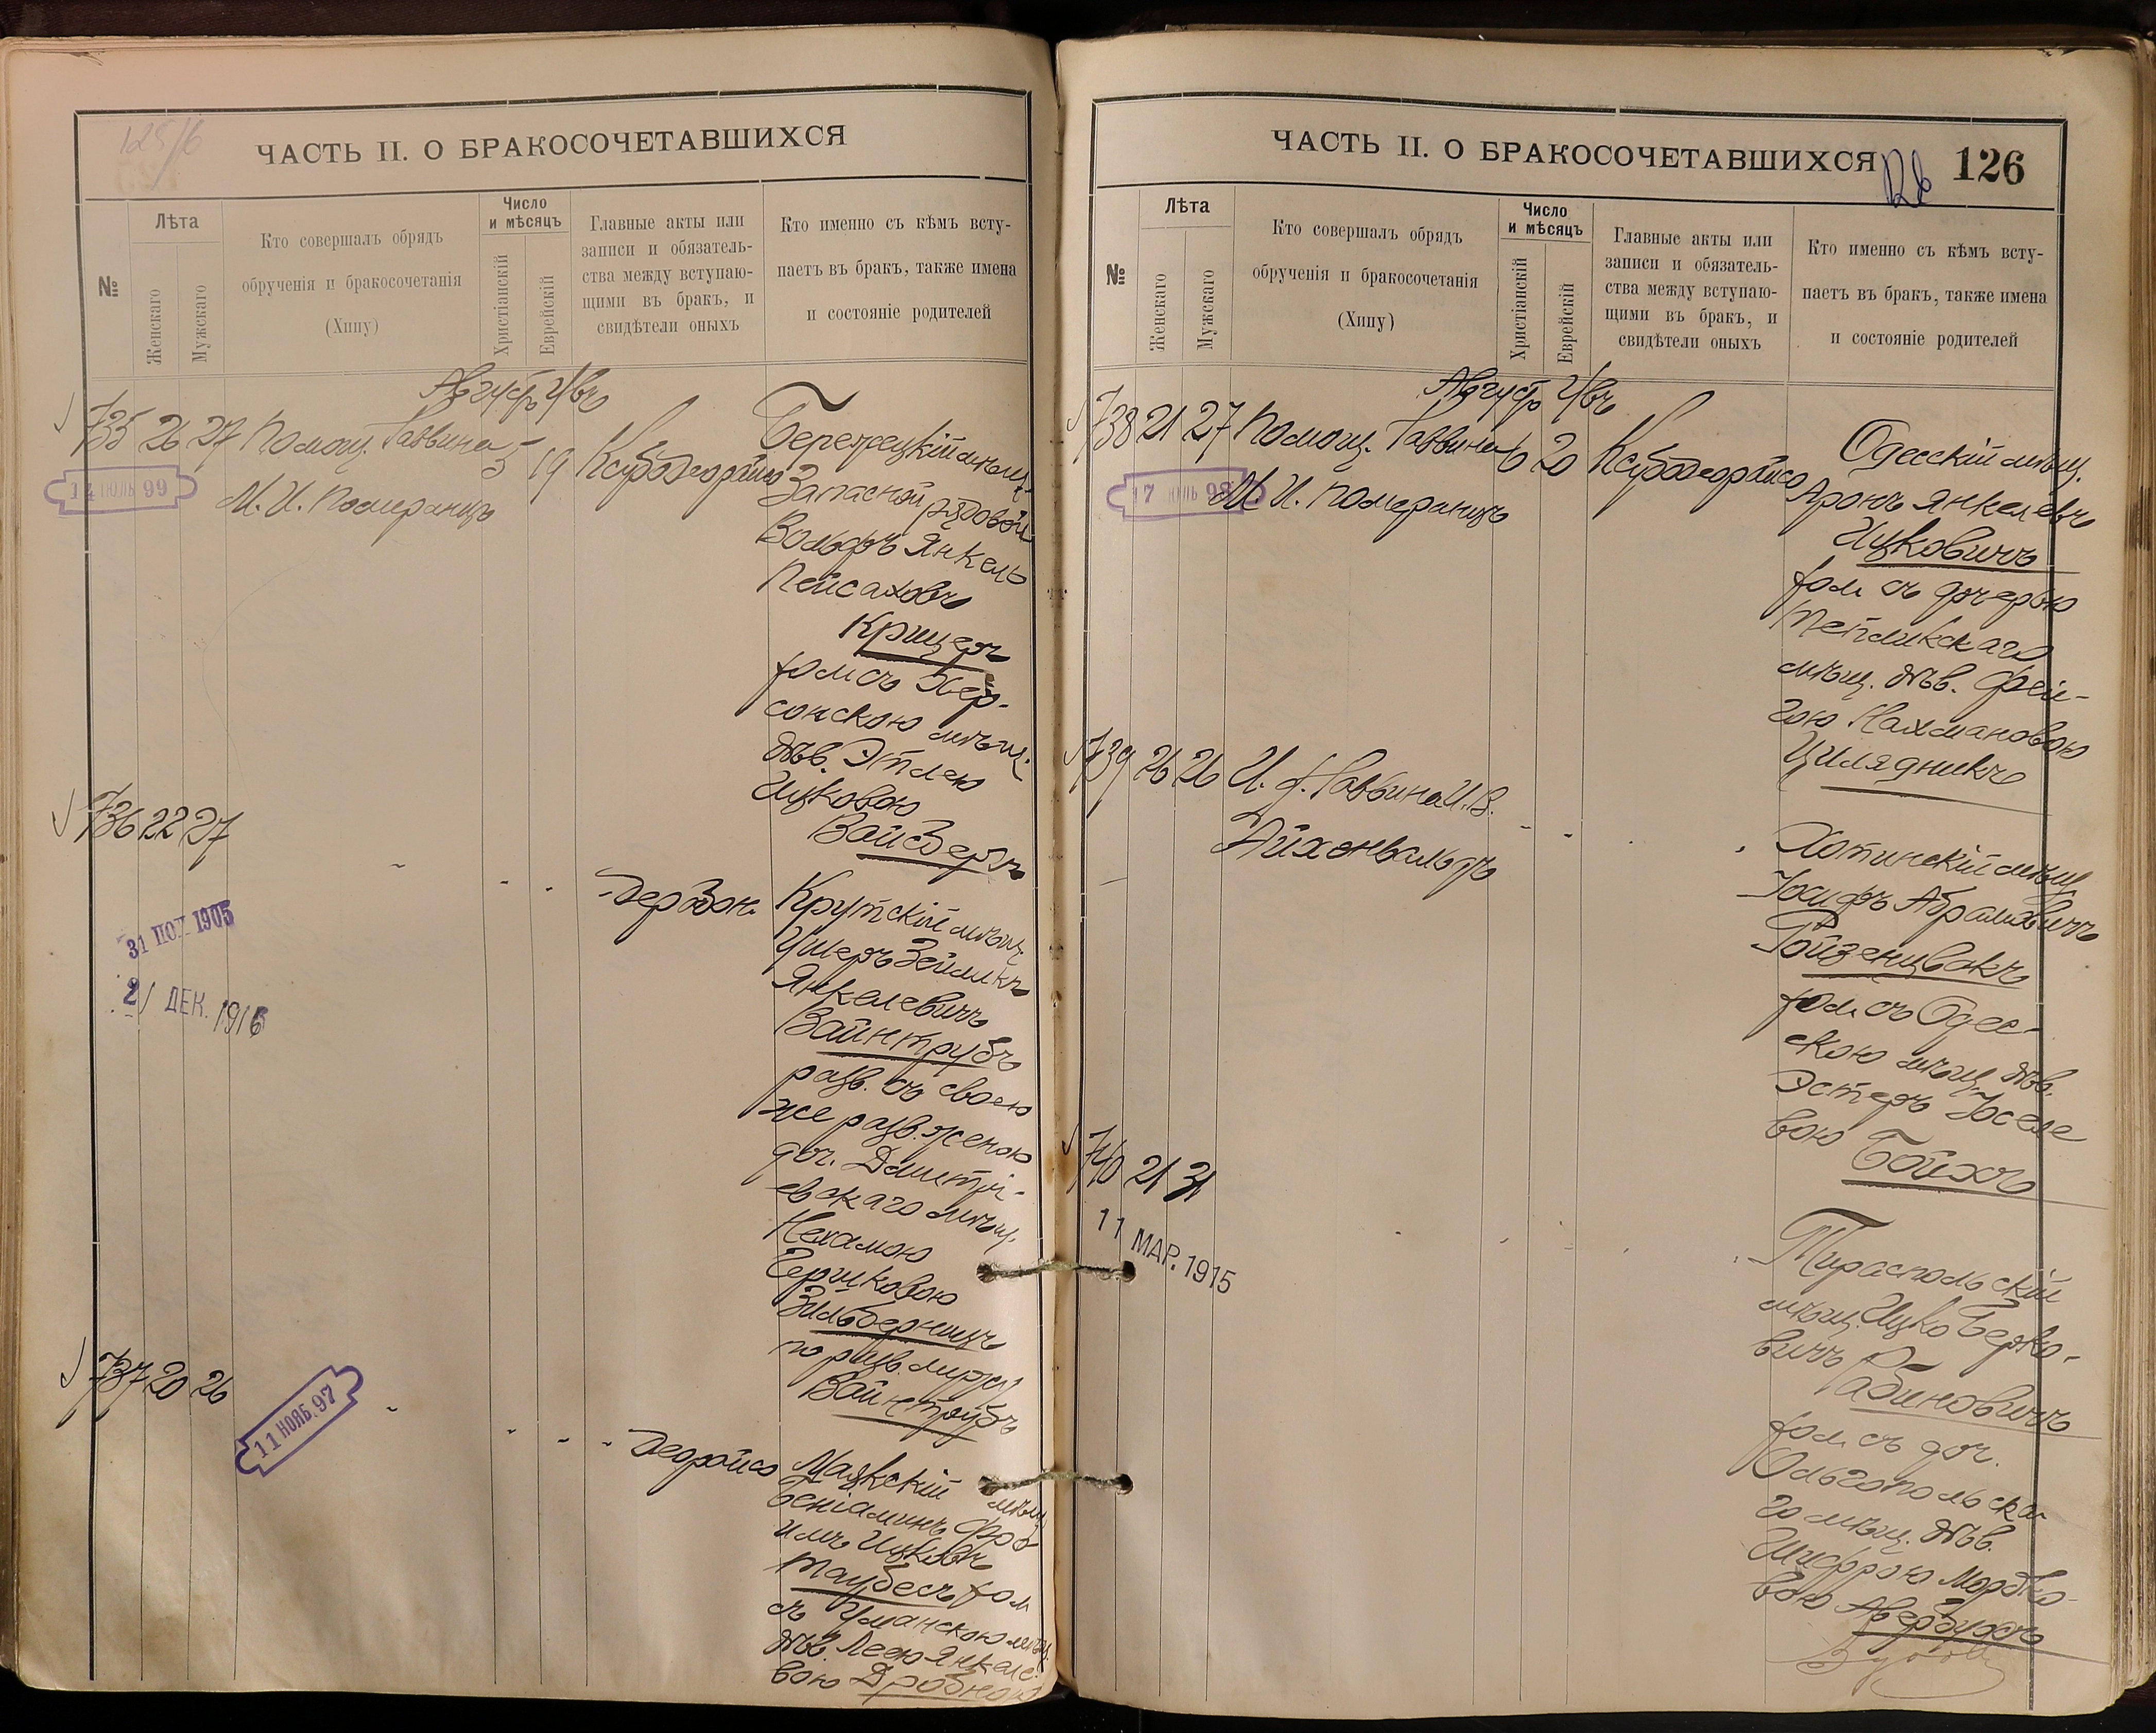 125/6
ЧАСТЬ II. О БРАКОСОЧЕТАВШИХСЯ
№
Лѣта
Женскаго
Мужскаго
Кто совершалъ обрядъ
обрученія и бракосочетанія
(Хипу)
Число
и мѣсяцъ
Христіанскій
Еврейскій
Главные акты или
записи и обязатель-
ства между вступаю-
щими въ бракъ, и
свидѣтели оныхъ
Кто именно съ кѣмъ всту-
паетъ въ бракъ, также имена
и состояніе родителей
Август Увъ
735 26 27 Помощ. Раввина 5 19 Ксубодеорайсо
14 ІЮЛЬ 99
М. И. Померанцъ
Бережецкій мѣщ.
Запасной рядовой
Вольфъ Янкель
Пейсаховъ
Крицеръ
хол съ Хер-
сонскою мѣщ.
дѣв. Этлею
Ицковою
Вайсбергъ
736 22 27
31 1905
21 ДЕК. 1916
Крутскій мѣщ.
Ушеръ Зейликъ
Янкелевичъ
Вайнтрубъ
разв. съ своею
же разв. женою
доч. Дмитрі-
евскаго мѣщ.
Нехамою
Берковою
Зильберницъ
по разв. мужу
Вайнтрубъ
737 20 26
11 НОЯБ. 97
Деорайсо
Маякскій мѣщ.
Беніаминъ Фро-
имъ Ицковъ
Таубесъ хол
съ Уманскою мѣщ.
дѣв. Леею Янкеле-
вою Дробною
ЧАСТЬ II. О БРАКОСОЧЕТАВШИХСЯ
126
126
№
Лѣта
Женскаго
Мужскаго
Кто совершалъ обрядъ
обрученія и бракосочетанія
(Хипу)
Число
и мѣсяцъ
Христіанскій
Еврейскій
Главные акты или
записи и обязатель-
ства между вступаю-
щими въ бракъ, и
свидѣтели оныхъ
Кто именно съ кѣмъ всту-
паетъ въ бракъ, также имена
и состояніе родителей
Август Увъ
738 21 27 Помощ. Раввина 6 20 Ксубодеорайсо
17 ІЮЛЬ 98
М. И. Померанцъ
Одесскій мѣщ.
Аронъ Янкелевъ
Ицковичъ
хол съ дочерью
Тепликскаго
мѣщ. дѣв. Фей-
гою Нахмановою
Цилядникъ
739 26 26 И. д. Раввина И. В.
Айхенвальдъ
Хотинскій мѣщ.
Іосифъ Абрамовичъ
Ройзенцвакъ
хол съ Одес-
скою мѣщ. дѣв.
Эстеръ Іоселе
вою Бойхъ
740 21 31
11 МАР. 1915
Тираспольскій
мѣщ. Ицко Берко-
вичъ Рабиновичъ
хол съ доч.
Ольгопольска-
го мѣщ. дѣв.
Шифрою Мордко-
вою Авербухъ